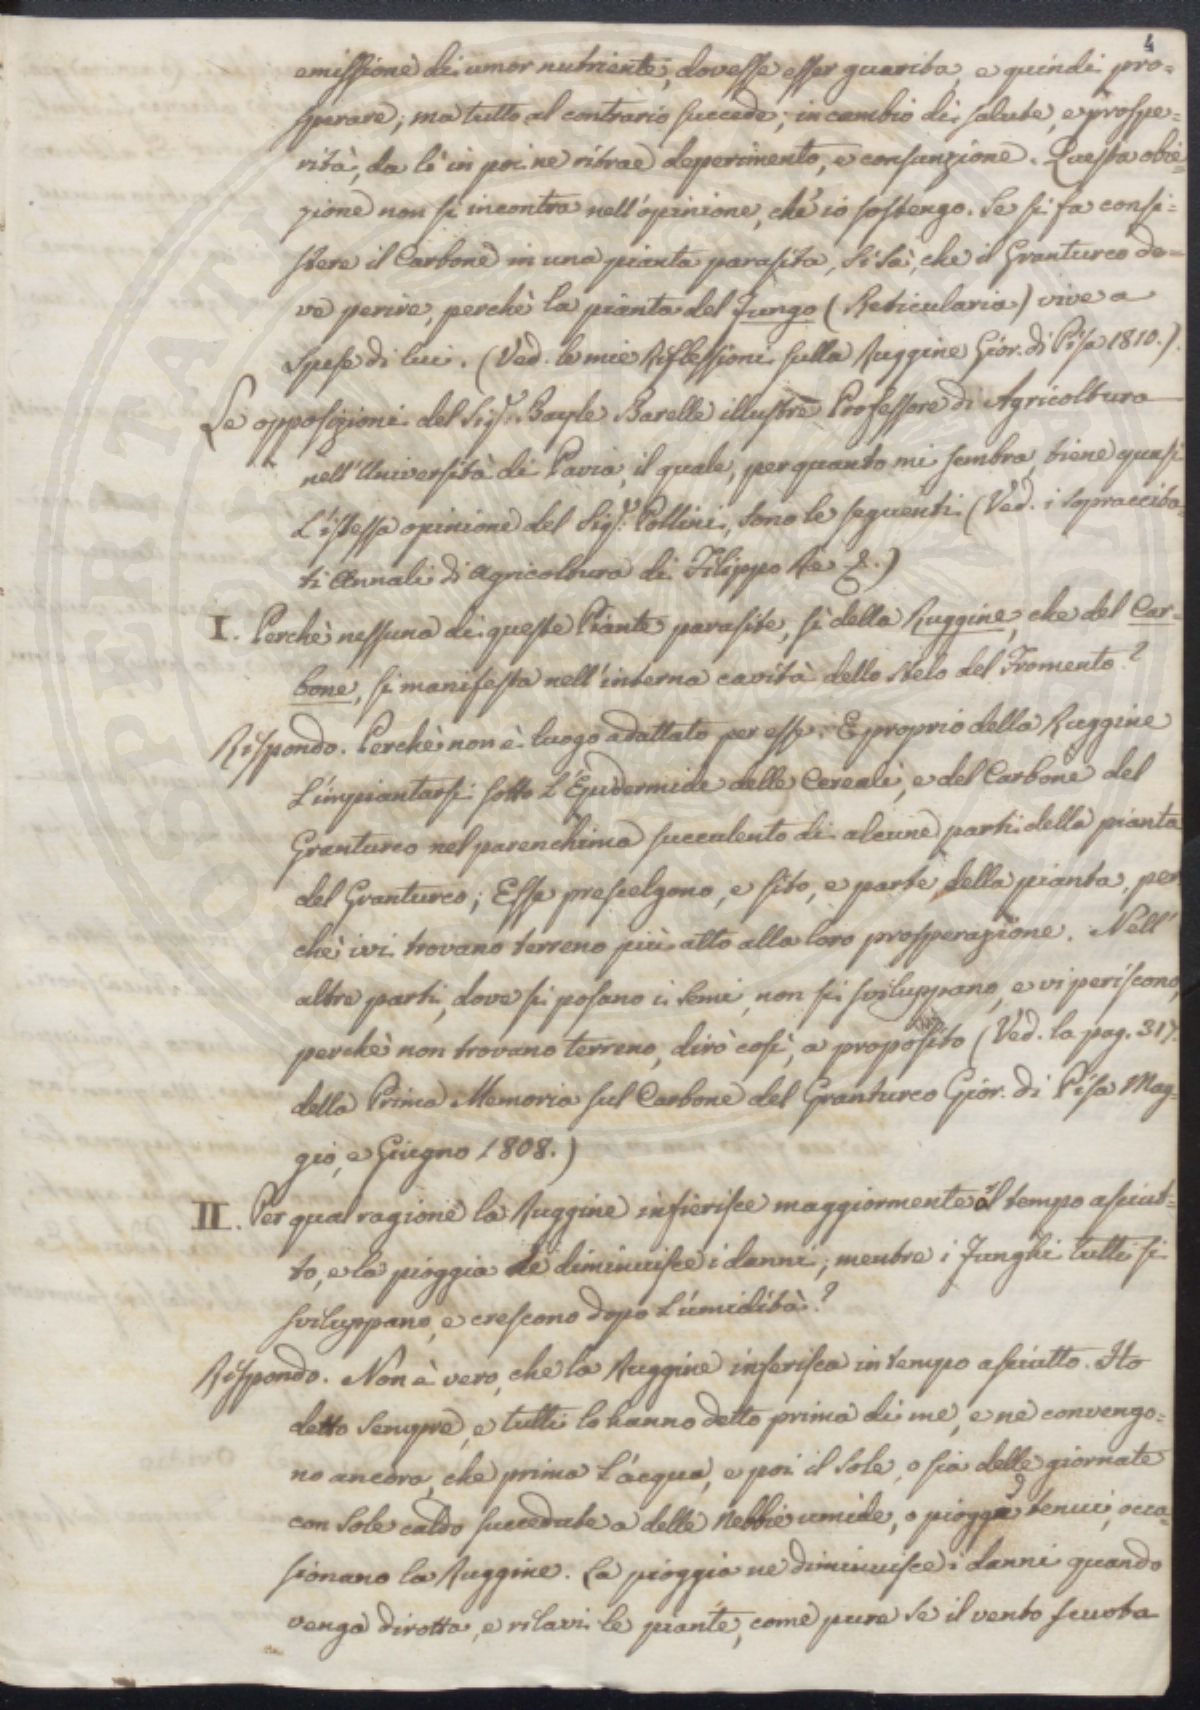 4
emissione di umor nutriente, dovesse esser guarita, e quindi pro=
sperare; ma tutto al contrario succede; in cambio di salute, e prospe=
rità, da lì in poi ne ritrae deperimento, e consunzione. Questa obie=
zione non si incontra nell'opinione, che io sostengo. Se si fa consi=
stere il Carbone in una pianta parasita, si sà, che il Granturco de=
ve perire, perchè la pianta del Fungo (Reticularia) vive a
spese di lui. (Ved. le mie Riflessioni sulla Ruggine Gior. di Pisa 1810.).
Le opposizioni del Sigr. Bayle Barelle illustre Professore di Agricoltura
nell'Università di Pavia, il quale, per quanto mi sembra, tiene quasi
l'istessa opinione del Sigr. Pollini, sono le seguenti (Ved. i sopraccita=
ti Annali di Agricoltura di Filippo Re &.)
I. Perchè nessuna di queste Piante parasite, sì della Ruggine, che del Car=
bone, si manifesta nell'interna cavità dello stelo del Fromento?
Rispondo. Perchè non è luogo adattato per esse. È proprio della Ruggine
l'impiantarsi sotto l'Epidermide delle Cereali, e del Carbone del
Granturco nel parenchima succulento di alcune parti della pianta
del Granturco; Esse prescelgono, e sito, e parte della pianta, per
chè ivi trovano terreno più atto alla loro prosperazione. Nell'
altre parti, dove si posano i semi, non si sviluppano, e vi periscono,
perchè non trovano terreno, dirò così, a proposito (Ved. la pag. 317.
della Prima Memoria sul Carbone del Granturco Gior. di Pisa Mag=
gio, e Giugno 1808.)
II. Per qual ragione la Ruggine infierisce maggiormente al tempo asciut=
to, e la pioggia ne diminuisce i danni; mentre i Funghi tutti si
sviluppano, e crescono dopo l'umidità?
Rispondo. Non è vero, che la Ruggine inferisca in tempo asciutto. Ho
detto sempre, e tutti lo hanno detto prima di me, e ne convengo=
no ancora, che prima l'acqua, e poi il Sole, o sia delle giornate
con Sole caldo succedute a delle Nebbie umide, o piogge tenui, occa=
sionano la Ruggine. La pioggia ne diminuisce i danni quando
venga dirotta, e rilavi le piante, come pure se il vento scuota